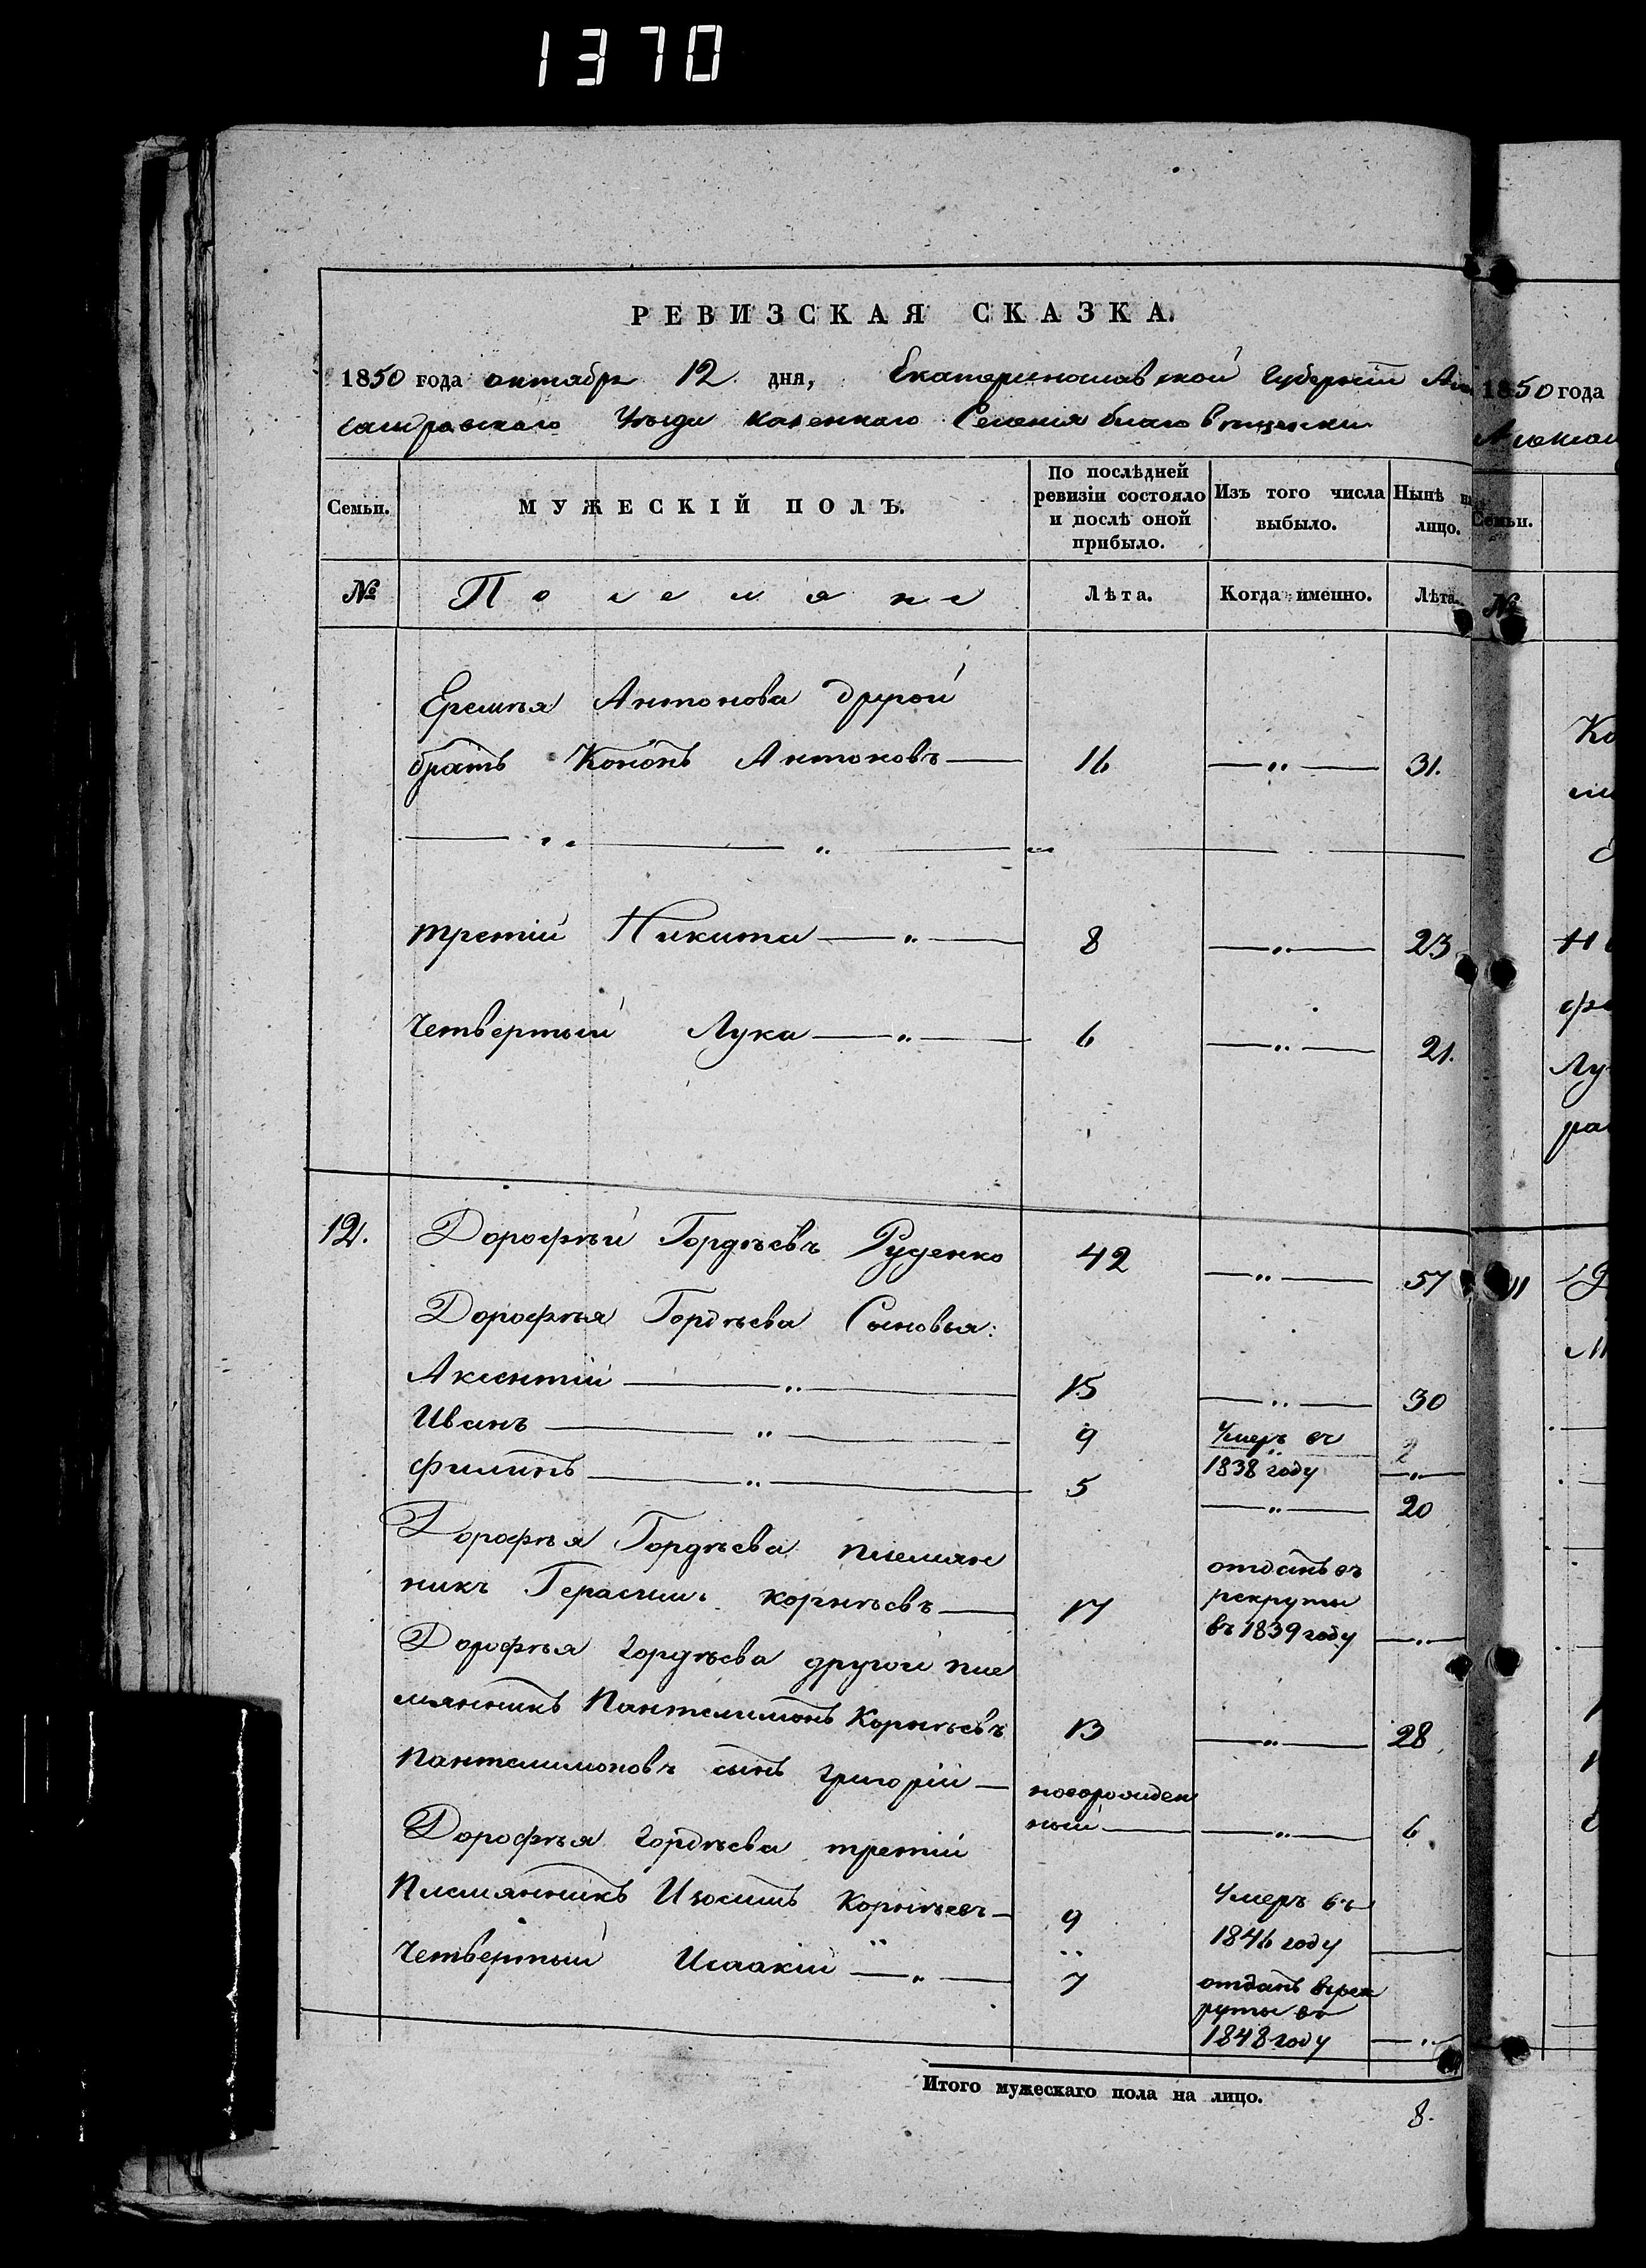 1370
РЕВИЗСКАЯ СКАЗКА.
1850 года октября 12 дня, Екатеринославской Губернiи Алек
сандровскаго Уѣзда казеннаго Селенiя Благовѣщенски
Семьи. МУЖЕСКІЙ ПОЛЪ. По послѣдней ревизіи состояло и послѣ оной прибыло. Изъ того числа выбыло. Нынѣ на лицо.
№ Поселяне Лѣта. Когда именно. Лѣта.
Еремѣя Антонова другой
братъ Кононъ Антоновъ — 16 — „ — 31.
третiй Никита — „ — 8 — „ — 23
Четвертый Лука — „ — 6 — „ — 21.
12. Дорофѣй Гордѣевъ Руденко 42 — „ — 57
Дорофѣя Гордѣева Сыновья:
Аксентiй — „ — 15 — „ — 30
Иванъ — „ — 9 Умеръ въ 1838 году — „ —
Филипъ — „ — 5 — „ — 20
Дорофѣя Гордѣева племян
никъ Герасимъ Корнѣевъ — 17 отданъ въ рекруты въ 1839 году — „ —
Дорофѣя Гордѣева другой пле
мянникъ Пантелимонъ Корнѣевъ 13 — „ — 28
Пантелимоновъ сынъ Григорiй — новорожден
ный — „ — 6
Дорофѣя Гордѣева третiй
Племянникъ Изосимъ Корнѣевъ — 9 Умеръ въ 1846 году —
Четвертый Исаакiй — „ — 7 отданъ въ рек
руты въ
1848 году — „
Итого мужескаго пола на лицо. 8.
1850 года
Семьи.
№
Ко
Лу
11